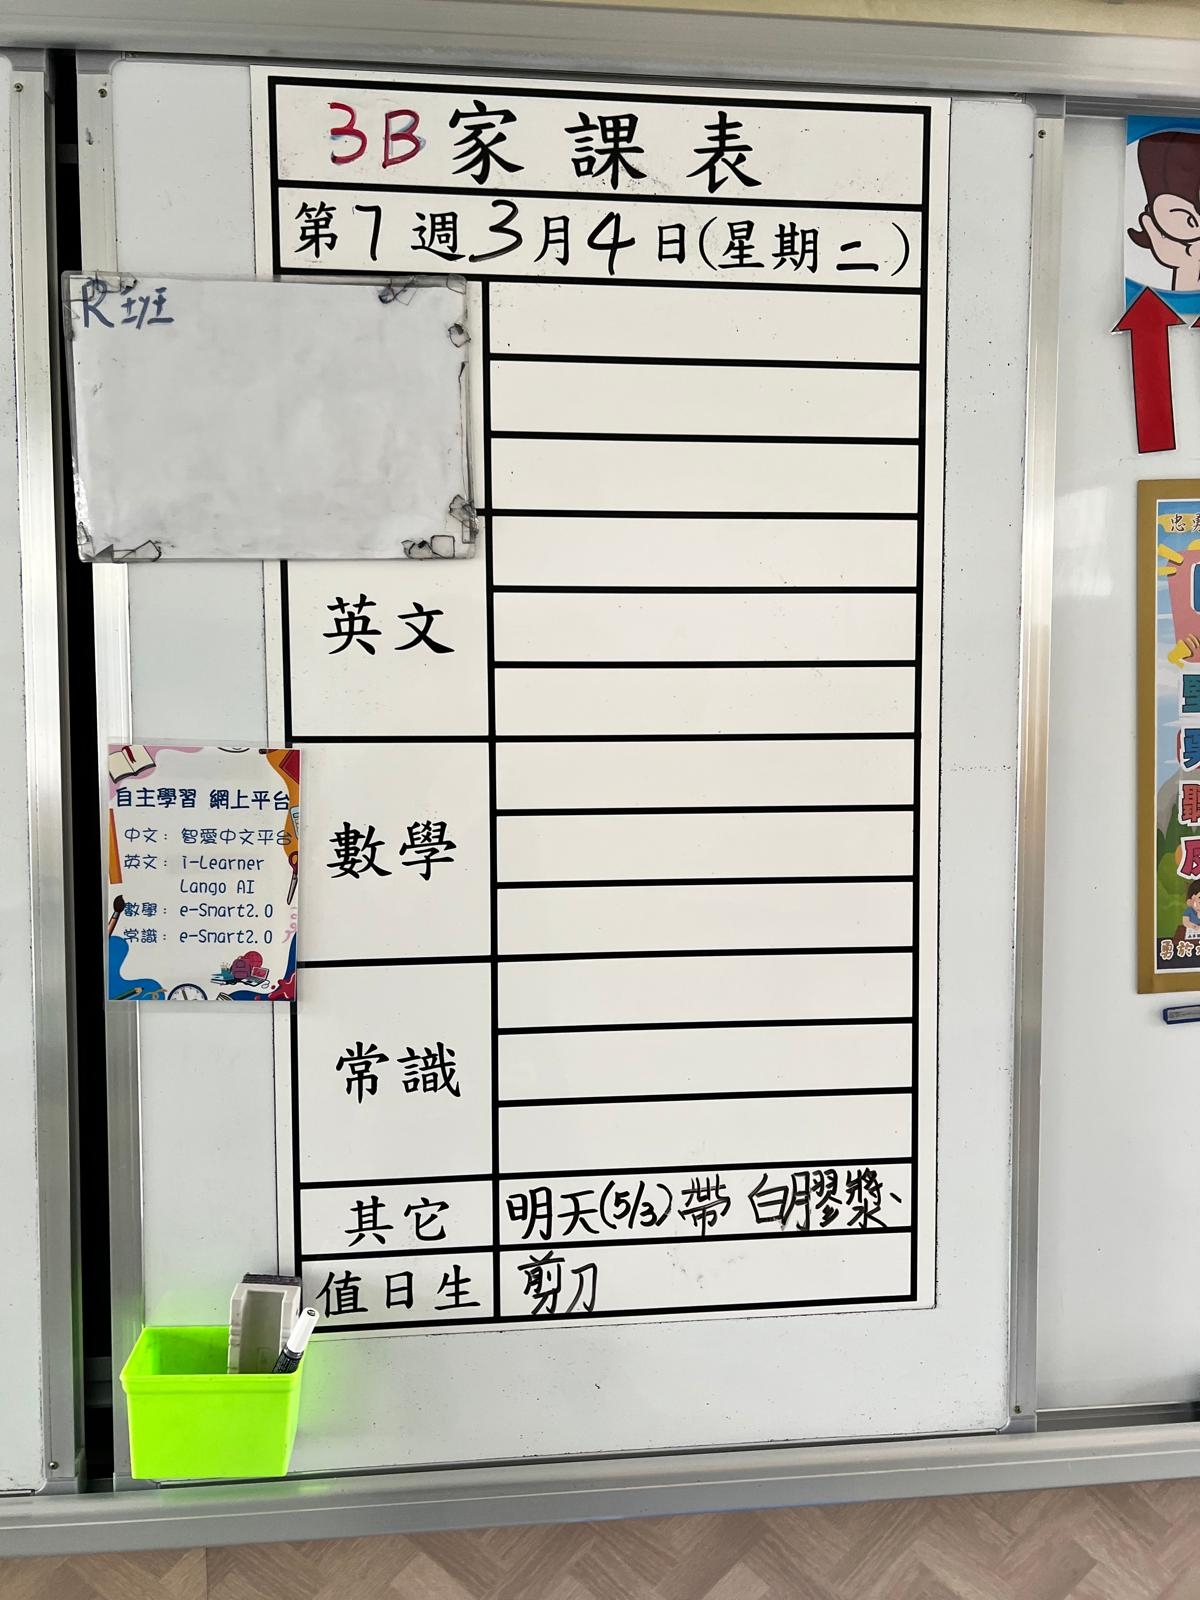 3B家課表
第7週3月4日(星期二)
R班
英文
數學
常識
其它 明天(5/3)帶 白膠漿、
值日生 剪刀
自主學習 網上平台
中文: 智愛中文平台
英文: i-Learner
Lango AI
數學: e-Smart2.0
常識: e-Smart2.0
忠勇
堅
勇於